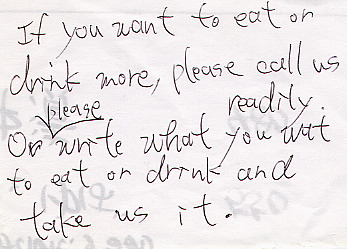 If you want to eat or
drink more, please call us
please readily.
Or write what you wat
to eat or drink and
take us it.